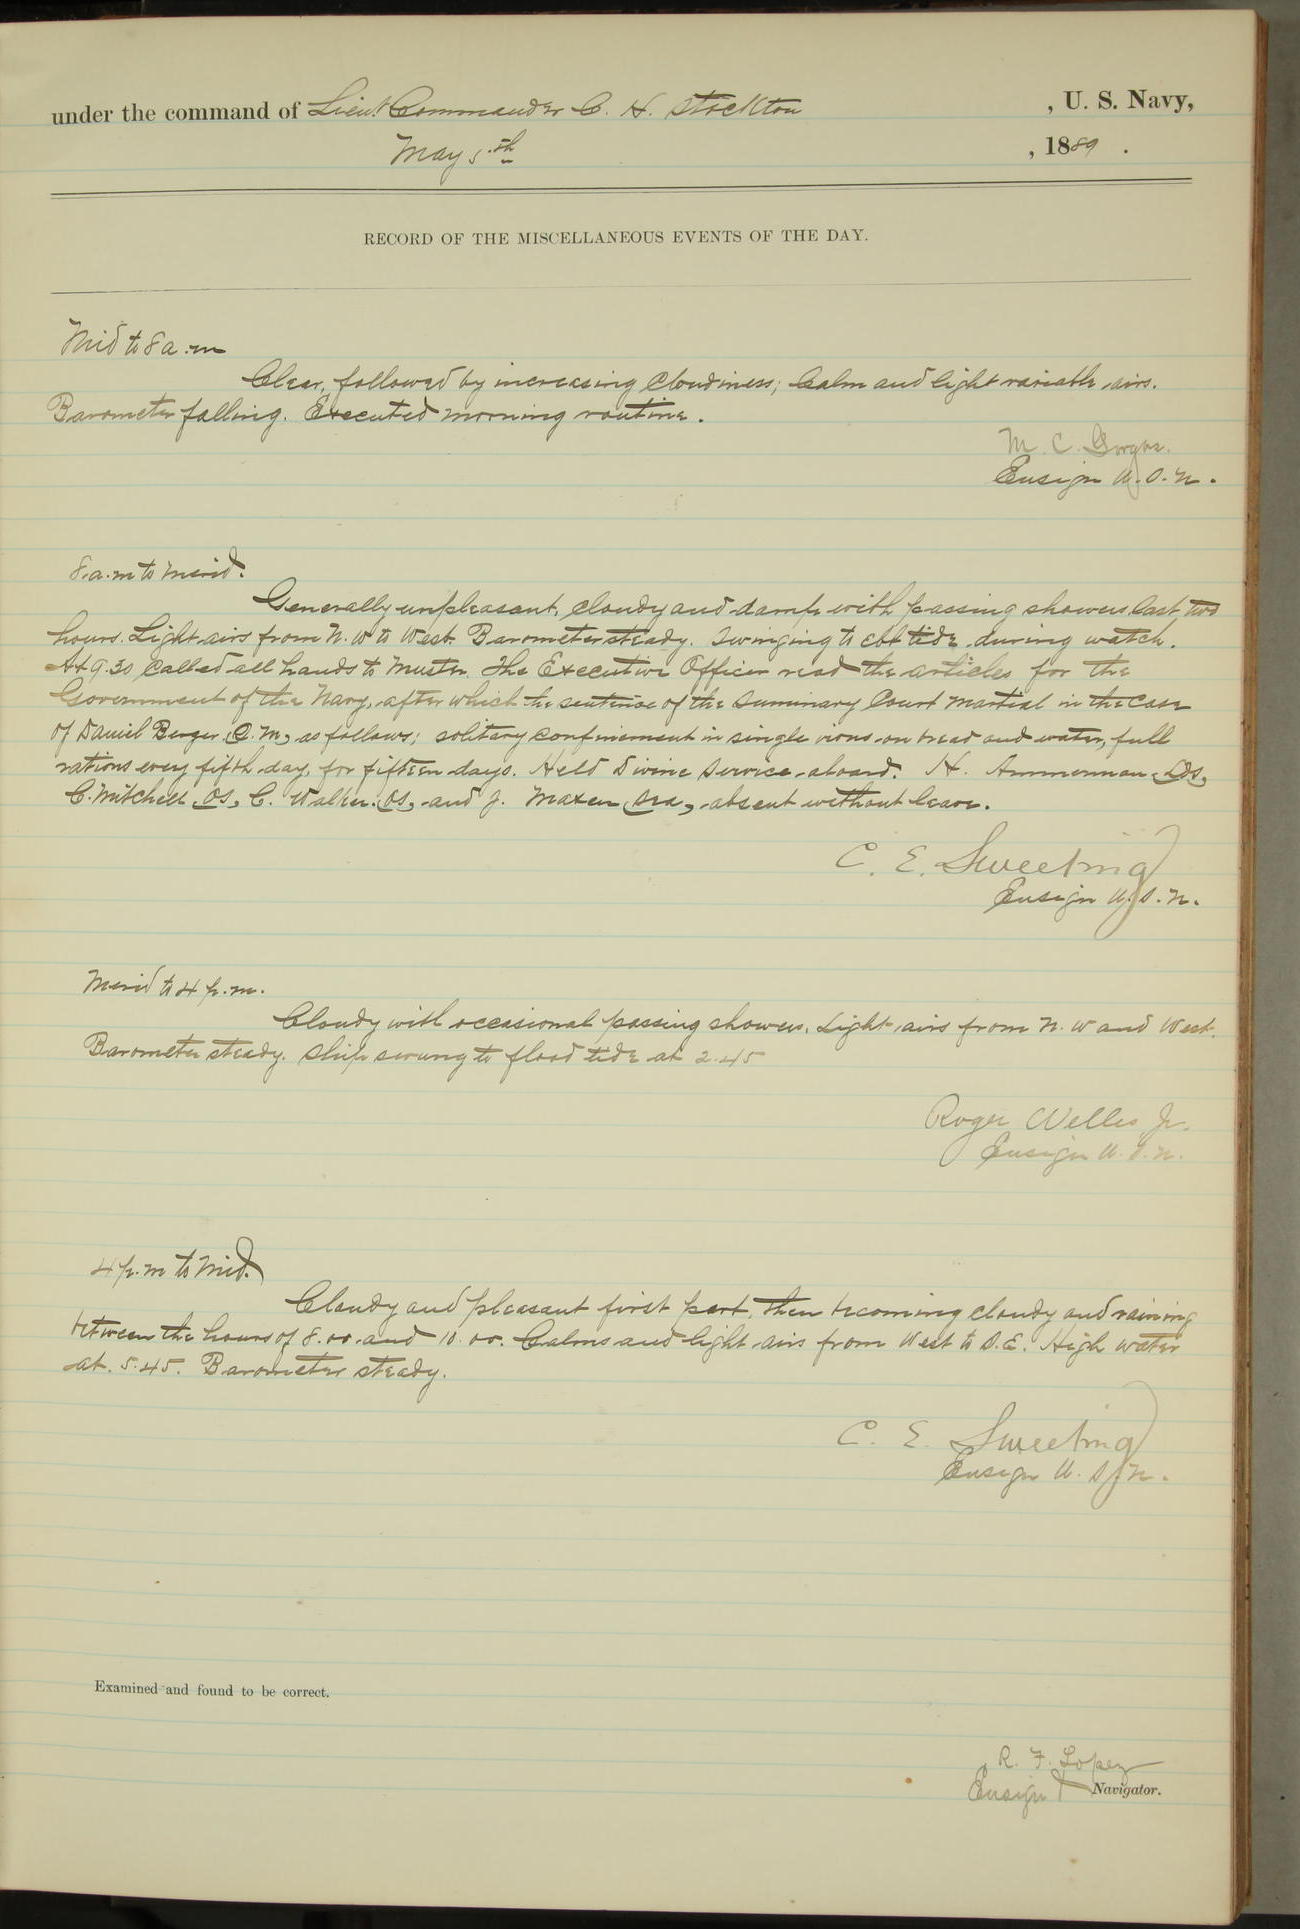 under the command of Lieut Commander C. H. Stockton , U. S. Navy,
May 5th , 1889 .
RECORD OF THE MISCELLANEOUS EVENTS OF THE DAY.
Mid to 8 a.m
Clear, followed by increasing cloudiness; Calm and light variable airs.
Barometer falling. Executed morning routine.
M. C. Gorgas.
Ensign U.S.N.
8.a.m to Merid.
Generally unpleasant, cloudy and damp with passing showers last two
hours. Light airs from N.W to West. Barometer steady. Swinging to ebb tide during watch.
At 9.30 called all hands to muster. The Executive Officer read the articles for the
Government of the Navy, after which the sentence of the Summary Court Martial in the case
of Daniel Berger, as follows; solitary confinement in single irons on bread and water, full
rations every fifth day, for fifteen days. Held Divine Service aboard. H. Ammerman (Lds),
C. Mitchell (OS), C. Walker (OS), and J. Maxen (Sea), absent without leave.
C. E. Sweeting
Ensign U.S.N.
Merid to 4 p.m.
Cloudy with occasional passing showers. Light airs from N.W and West.
Barometer steady. Ship swung to flood tide at 2.45
Roger Welles Jr.
Ensign U.S.N.
4 p.m to Mid.
Cloudy and pleasant first part, then becoming cloudy and raining
between the hours of 8.00 and 10.00. Calms and light airs from West to S.E. High water
at 5.45. Barometer steady.
C. E. Sweeting
Ensign U.S.N.
Examined and found to be correct.
R. F. Lopez
Ensign & Navigator.